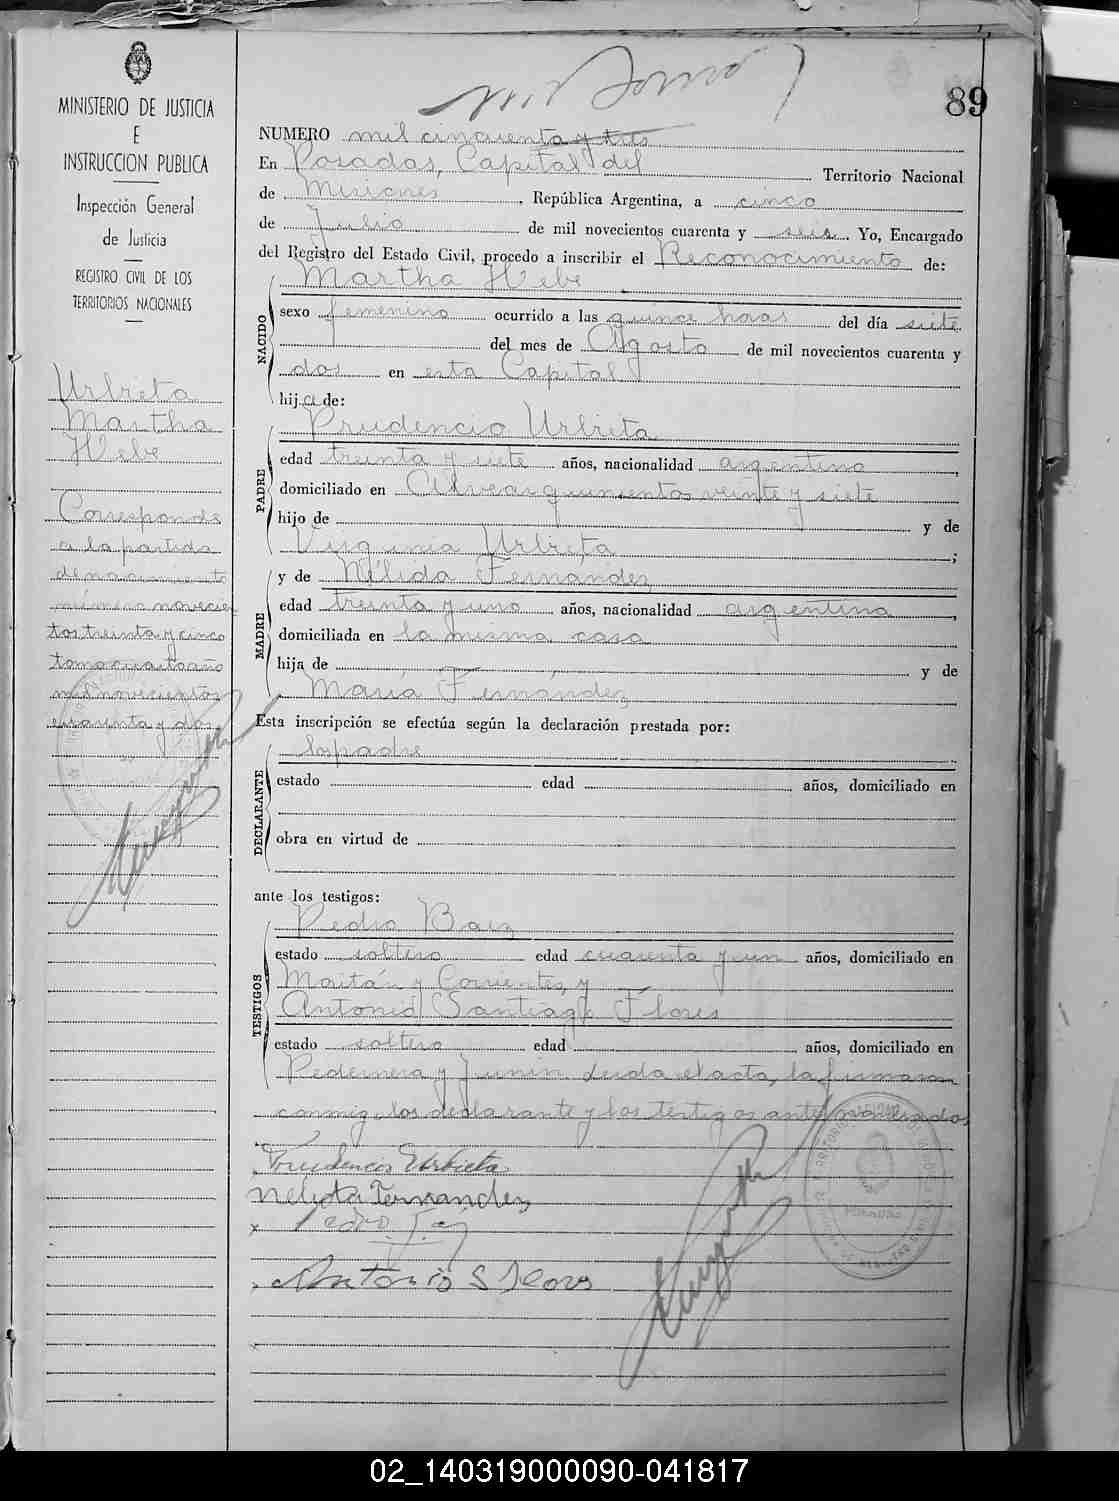 89
MINISTERIO DE JUSTICIA
E
INSTRUCCION PUBLICA
Inspección General
de Justicia
REGISTRO CIVIL DE LOS
TERRITORIOS NACIONALES
Urbieta
Martha
Hebe
Corresponde
a la partida
de nacimiento
número novecien
tos treinta y cinco
tomo cuarto año
mil novecientos
cuarenta y dos
NUMERO mil cincuenta y tres
En Posadas, Capital del Territorio Nacional
de Misiones, República Argentina, a cinco
de Julio de mil novecientos cuarenta y seis. Yo, Encargado
del Registro del Estado Civil, procedo a inscribir el Reconocimiento de:
Martha Hebe
NACIDO
sexo femenino ocurrido a las quince horas del día siete
del mes de Agosto de mil novecientos cuarenta y
dos en esta Capital
hija de:
Prudencio Urbieta
PADRE
edad treinta y siete años, nacionalidad argentino,
domiciliado en Alvear quinientos veinte y siete
hijo de y de
Virginia Urbieta;
y de Nélida Fernández
MADRE
edad treinta y uno años, nacionalidad argentina,
domiciliada en la misma casa
hija de y de
María Fernández
Esta inscripción se efectúa según la declaración prestada por:
los padre
DECLARANTE
estado edad años, domiciliado en
obra en virtud de
ante los testigos:
Pedro Baez
TESTIGOS
estado soltero edad cuarenta y un años, domiciliado en
Maitán y Corrientes, y
Antonio Santiago Flores
estado soltero edad años, domiciliado en
Pedernera y Junin. Leida el acta, la firmaron
conmigo los declarante y los testigos ante nombrados
Prudencio Urbieta
Nelida Fernandez
Antonio S Flores
02_140319000090-041817